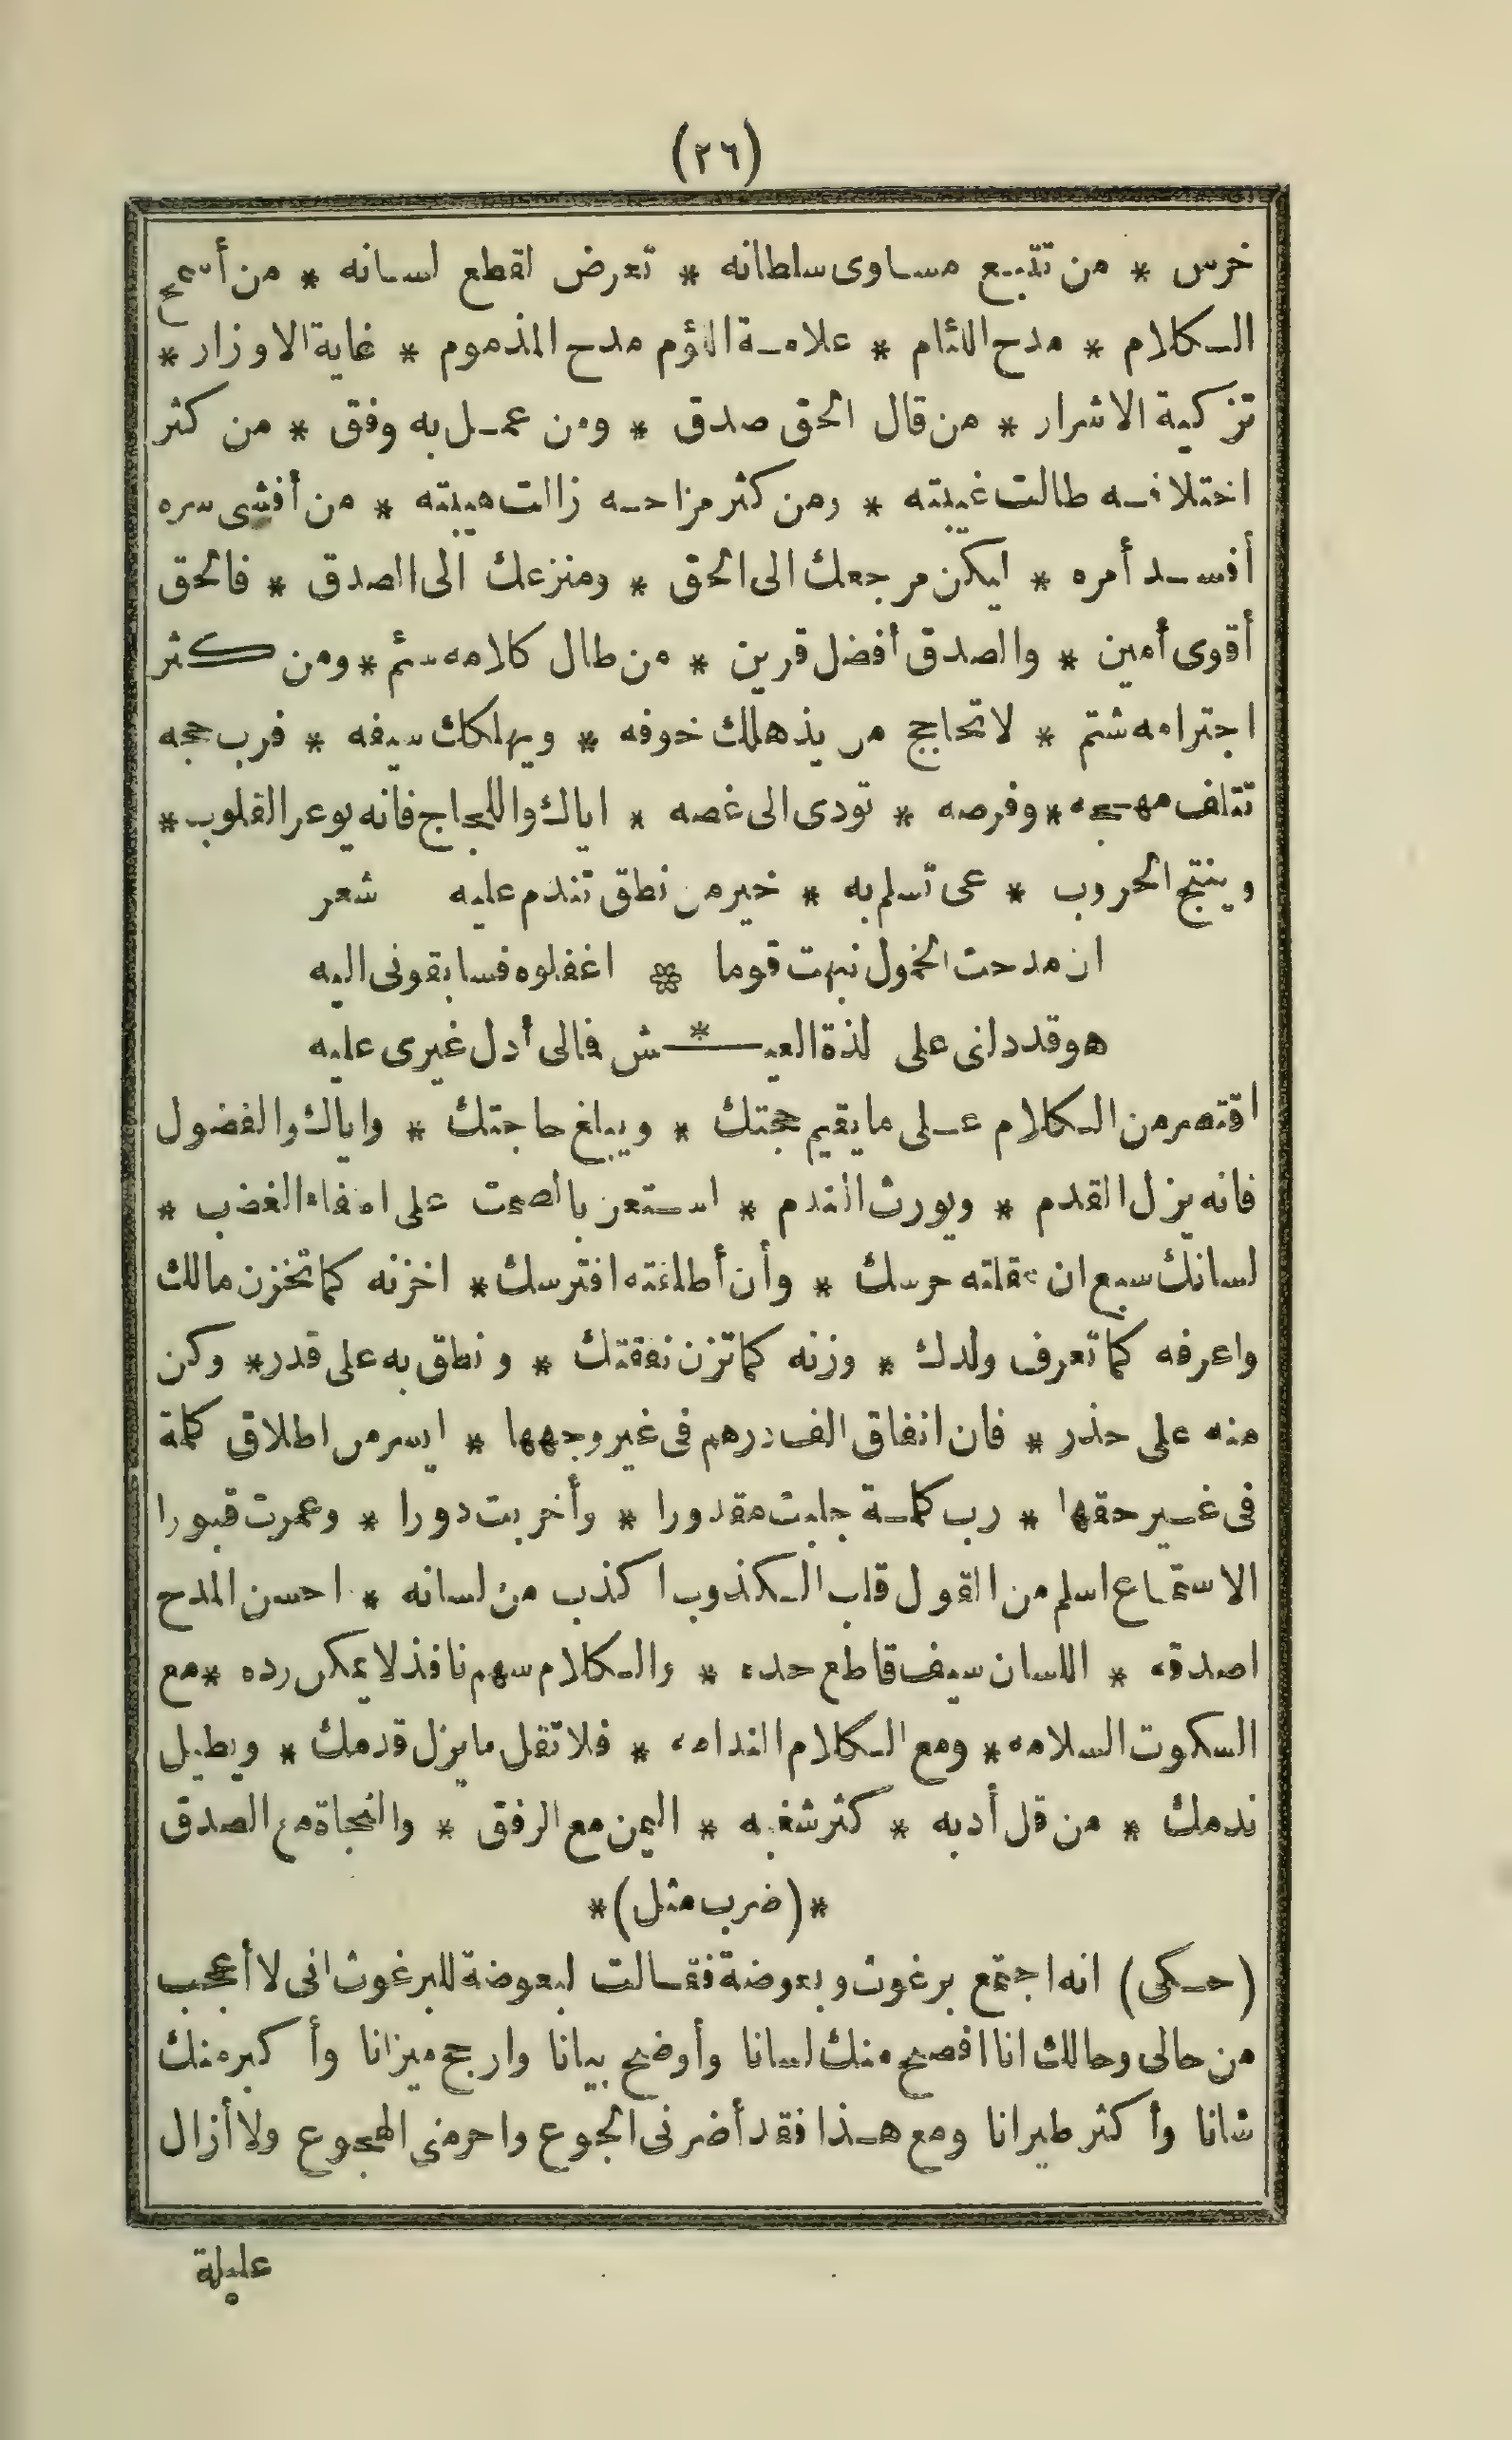 (٢٦)
خرس * من تتبع مساوى سلطانه * تعرض لقطع لسانه * من أسمج
الكلام * مدح اللئام * علامة اللؤم مدح المذموم * غاية الاوزار *
تزكية الاشرار * من قال الحق صدق * ومن عمل به وفق * من كثر
اختلافه طالت غيبته * ومن كثر مزاحه زالت هيبته * من أفشى سره
أفسد أمره * ليكن مرجعك الى الحق * ومنزعك الى الصدق * فالحق
أقوى أمين * والصدق أفضل قرين * من طال كلامه سئم * ومن كثر
اجترامه شتم * لا تحاجج من يذهلك خوفه * ويهلكك سيفه * فرب حجه
تتلف مهجه * وفرصه * تودى الى غصه * اياك واللجاج فانه يوعر القلوب *
وينتج الحروب * عى تسلم به * خير من نطق تندم عليه شعر
ان مدحت الخمول نبهت قوما * اغفلوه فسابقونى اليه
هو قد دلنى على لذة العيـ * ـش فمالى أدل غيرى عليه
اقتصر من الكلام على ما يقيم حجتك * ويبلغ حاجتك * واياك والفضول
فانه يزل القدم * ويورث الندم * استعن بالصمت على اطفاء الغضب *
لسانك سبع ان عقلته حرسك * وأن أطلقته افترسك * اخزنه كما تخزن مالك
واعرفه كما تعرف ولدك * وزنه كما تزن نفقتك * ونطق به على قدر * وكن
منه على حذر * فان انفاق الف درهم فى غير وجهها * ايسر من اطلاق كلمة
فى غير حقها * رب كلمة جلبت مقدورا * وأخربت دورا * وعمرت قبورا
الاستماع اسلم من القول قلب الكذوب اكذب من لسانه * احسن المدح
اصدقه * اللسان سيف قاطع حده * والكلام سهم نافذ لا يمكن رده * مع
السكوت السلامه * ومع الكلام الندامه * فلا تقل ما يزل قدمك * ويطيل
ندمك * من قل أدبه * كثر شغبه * اليمن مع الرفق * والنجاة مع الصدق
*(ضرب مثل)*
(حكى) انه اجتمع برغوث وبعوضة فقالت لبعوضة للبرغوث انى لا أعجب
من حالى وحالك انا افصح منك لسانا وأوضح بيانا وارجح ميزانا وأكبر منك
شانا وأكثر طيرانا ومع هذا فقد أضرنى الجوع واحرمنى الهجوع ولا أزال
عليلة